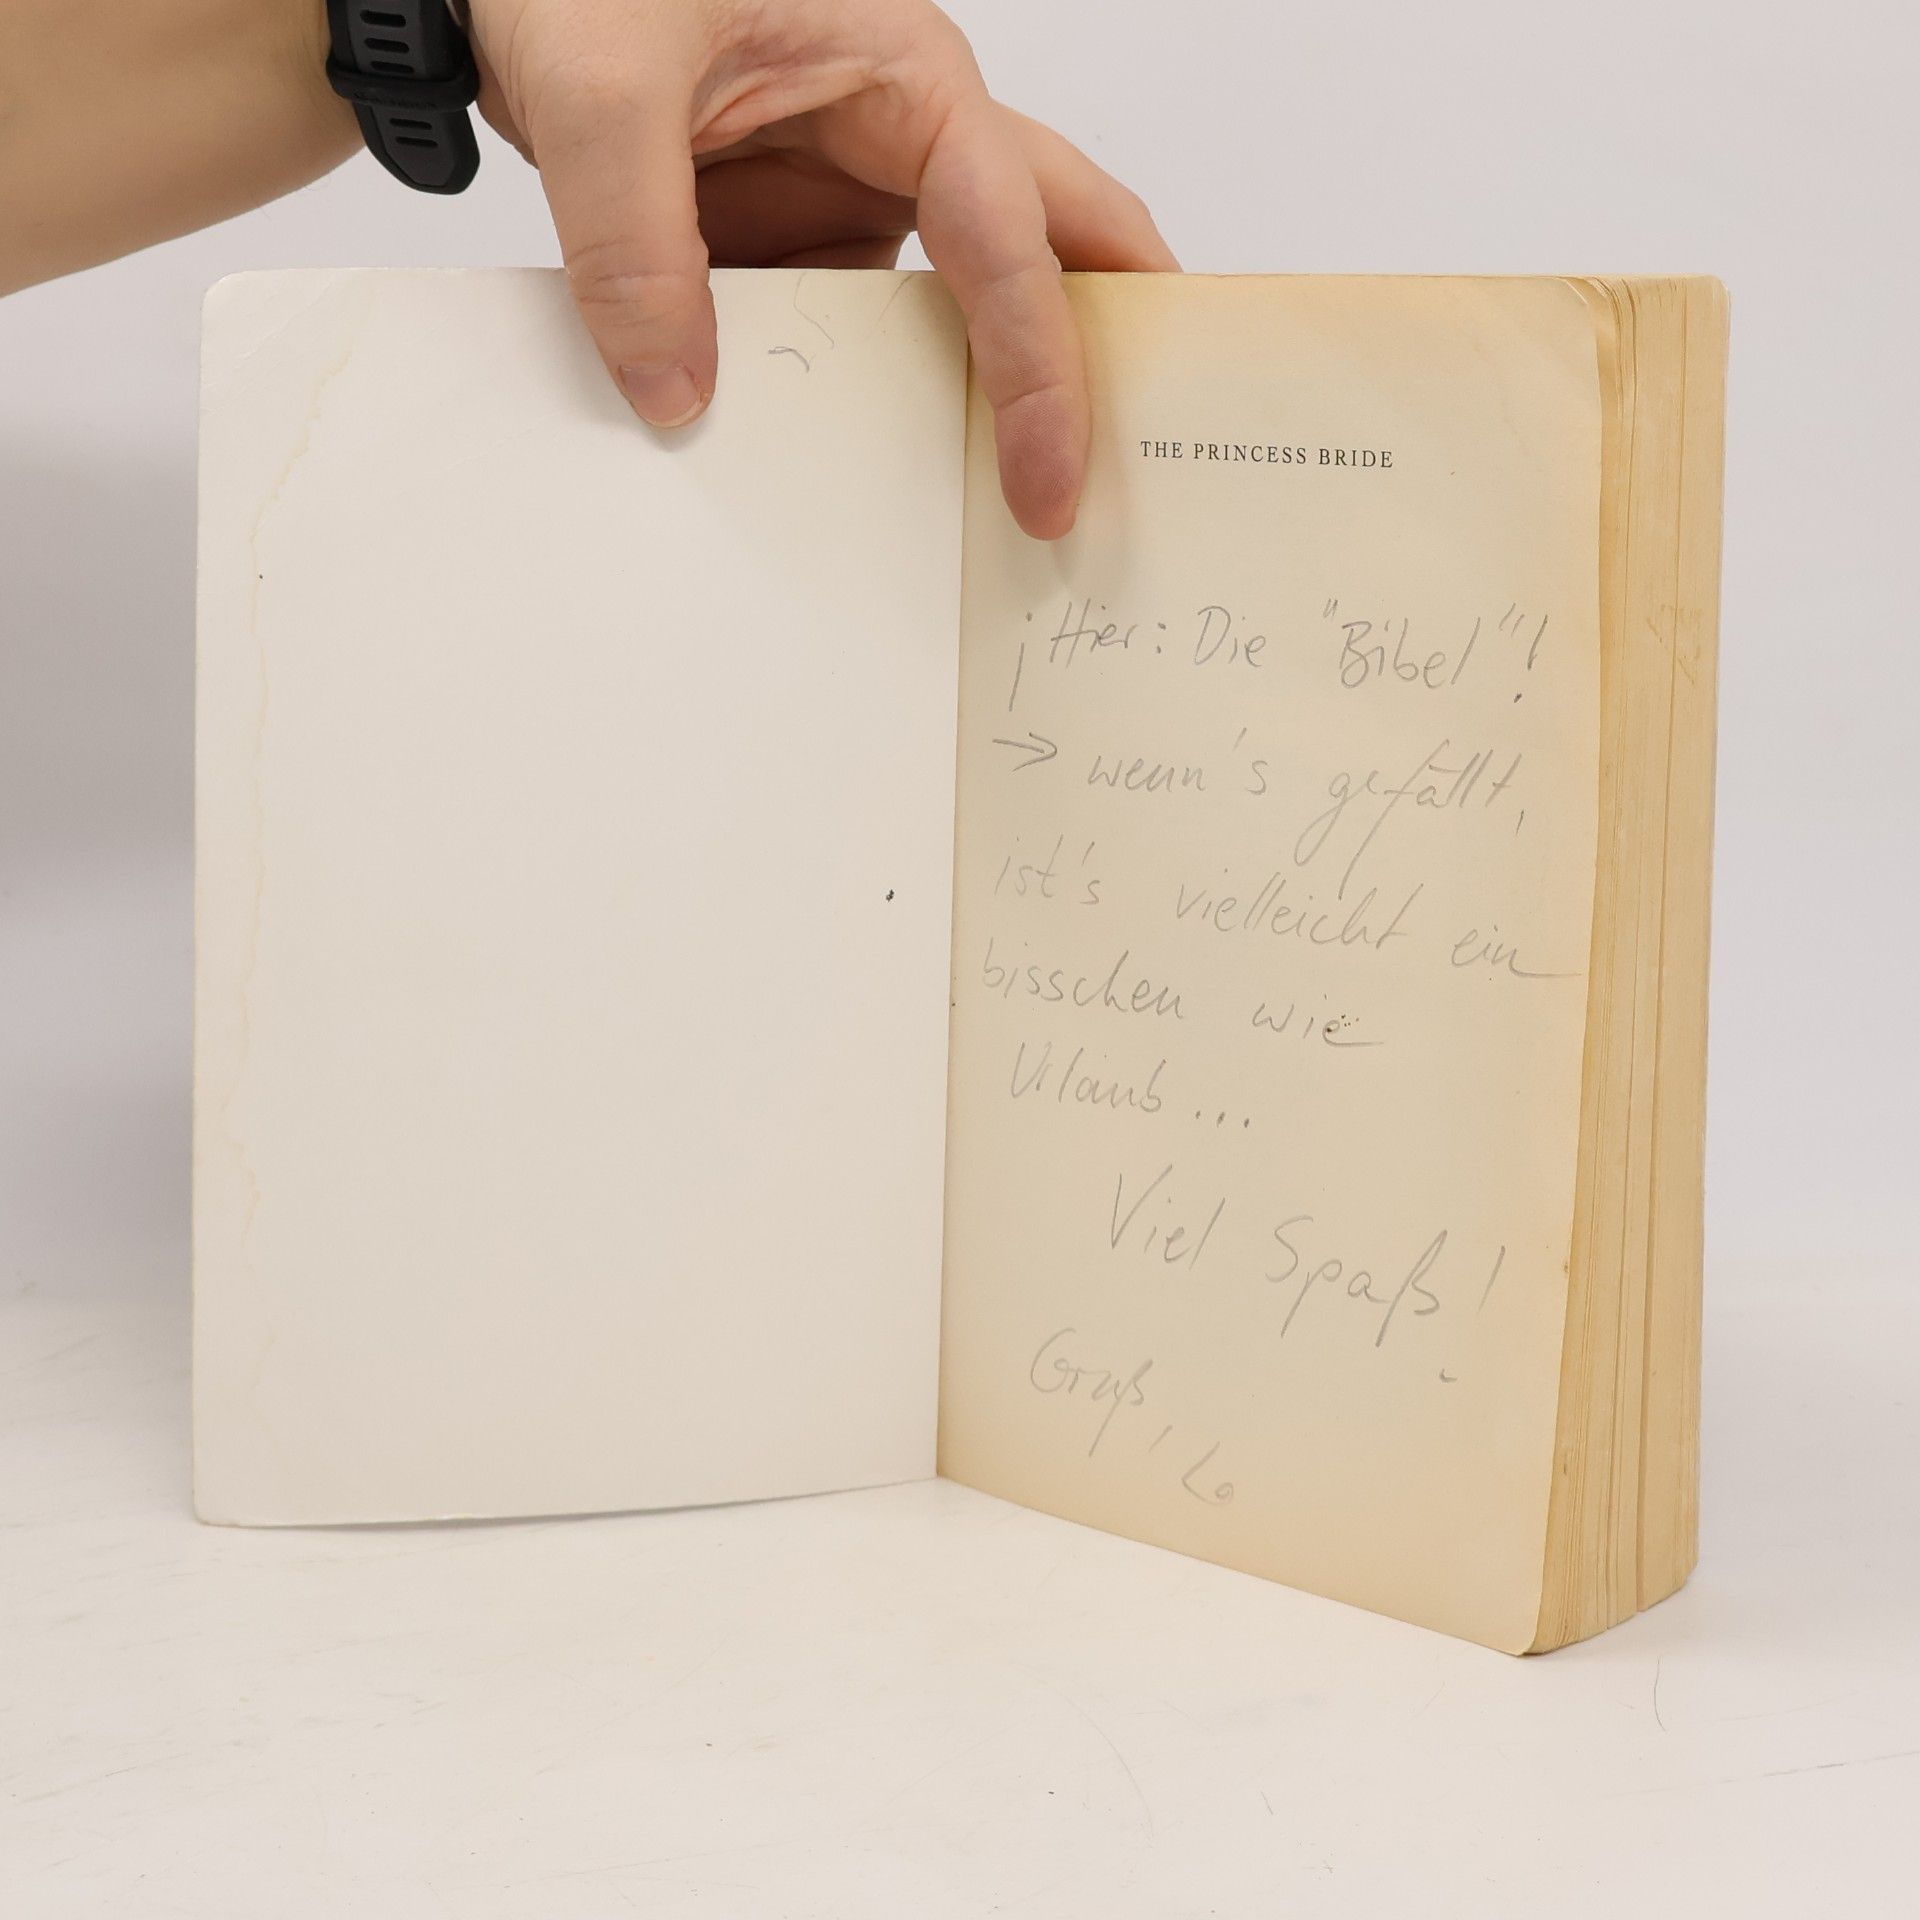 THE PRINCESS BRIDE
¡Hier: Die "Bibel"!
→ wenn's gefällt,
ist's vielleicht ein
bisschen wie
Urlaub...
Viel Spaß!
Gruß, Lo